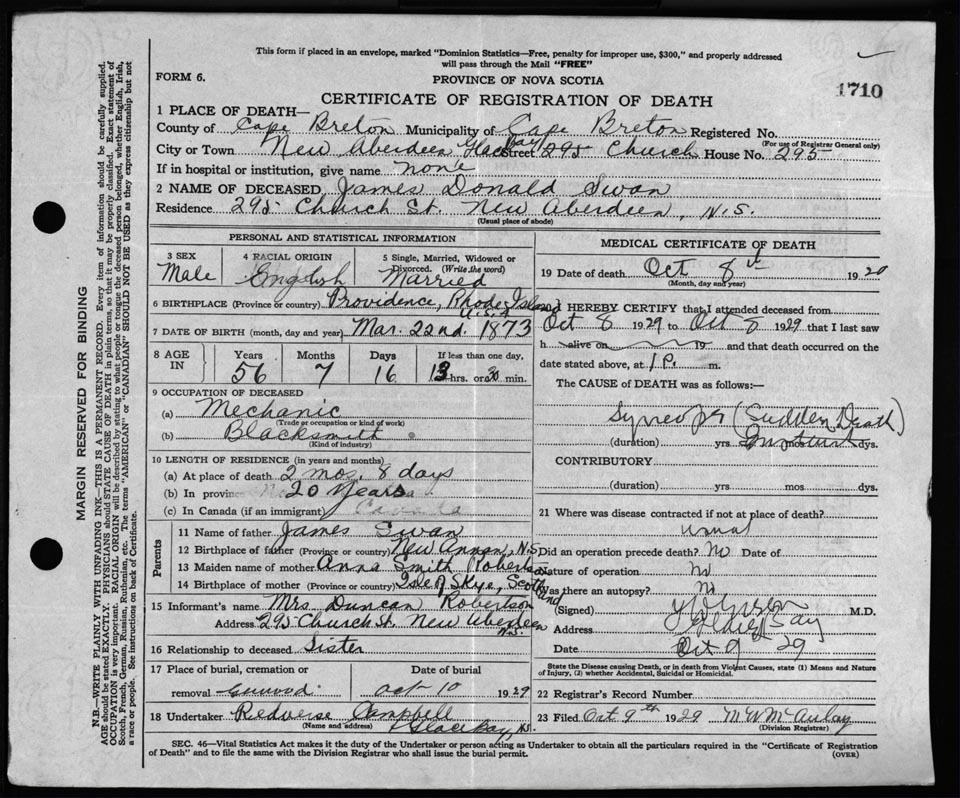 This form if placed in an envelope, marked "Dominion Statistics—Free, penalty for improper use, $300," and properly addressed
will pass through the Mail "FREE"
FORM 6.
PROVINCE OF NOVA SCOTIA
1710
CERTIFICATE OF REGISTRATION OF DEATH
1 PLACE OF DEATH—
County of Cape Breton Municipality of Cape Breton Registered No.
(For use of Registrar General only)
City or Town New Aberdeen Glace Bay Street 295 Church House No. 295
If in hospital or institution, give name none
2 NAME OF DECEASED James Donald Swan
Residence 295 Church St. New Aberdeen, N.S.
(Usual place of abode)
PERSONAL AND STATISTICAL INFORMATION
3 SEX Male
4 RACIAL ORIGIN English
5 Single, Married, Widowed or Divorced. (Write the word) Married
6 BIRTHPLACE (Province or country) Providence, Rhode Island U.S.A
7 DATE OF BIRTH (month, day and year) Mar. 22nd. 1873
8 AGE IN Years 56 Months 7 Days 16 If less than one day, 13 hrs. or 30 min.
9 OCCUPATION OF DECEASED
(a) Mechanic
(Trade or occupation or kind of work)
(b) Blacksmith
(Kind of industry)
10 LENGTH OF RESIDENCE (in years and months)
(a) At place of death 2 mos. 8 days
(b) In province 20 Years
(c) In Canada (if an immigrant) Canada
Parents
11 Name of father James Swan
12 Birthplace of father (Province or country) New Annan, N.S.
13 Maiden name of mother Anna Smith Robertson
14 Birthplace of mother (Province or country) Isle of Skye, Scotland
15 Informant's name Mrs. Duncan Robertson
Address 295 Church St. New Aberdeen N.S.
16 Relationship to deceased Sister
17 Place of burial, cremation or removal
Date of burial Oct 10 1929
18 Undertaker Redverse Campbell
(Name and address) Glace Bay, N.S.
MEDICAL CERTIFICATE OF DEATH
19 Date of death Oct 8th 1920
(Month, day and year)
20 I HEREBY CERTIFY that I attended deceased from
Oct 8 1929 to Oct 8 1929 that I last saw
h alive on 19 and that death occurred on the
date stated above, at 1 P. m.
The CAUSE of DEATH was as follows:—
(Sudden Death)
(duration) yrs. mos. dys.
CONTRIBUTORY
(duration) yrs. mos. dys.
21 Where was disease contracted if not at place of death?
usual
Did an operation precede death? No Date of
Nature of operation No
Was there an autopsy? No
(Signed) M.D.
Address Glace Bay
Date Oct 9 29
State the Disease causing Death, or in death from Violent Causes, state (1) Means and Nature
of Injury, (2) whether Accidental, Suicidal or Homicidal.
22 Registrar's Record Number
23 Filed Oct. 9th 1929 M W McAulay
(Division Registrar)
SEC. 46—Vital Statistics Act makes it the duty of the Undertaker or person acting as Undertaker to obtain all the particulars required in the "Certificate of Registration
of Death" and to file the same with the Division Registrar who shall issue the burial permit.
(OVER)
MARGIN RESERVED FOR BINDING
N.B.—WRITE PLAINLY WITH UNFADING INK—THIS IS A PERMANENT RECORD. Every item of information should be carefully supplied.
AGE should be stated EXACTLY. PHYSICIANS should STATE CAUSE OF DEATH in plain terms, so that it may be properly classified. Exact statement of
OCCUPATION is very important. RACIAL ORIGIN will be described by stating to what people or tongue the deceased person belonged, whether English, Irish,
Scotch, French, German, Russian, Ruthenian, etc. The terms "AMERICAN" or "CANADIAN" SHOULD NOT BE USED as they express citizenship but not
a race or people. See instructions on back of Certificate.